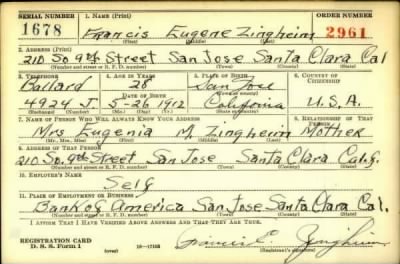 SERIAL NUMBER 1. NAME (Print) ORDER NUMBER
1678 Francis Eugene Zingheim 2961
(First) (Middle) (Last)
2. ADDRESS (Print)
210 So. 9th Street San Jose Santa Clara Cal
(Number and street or R. F. D. number) (Town) (County) (State)
3. TELEPHONE 4. AGE IN YEARS 5. PLACE OF BIRTH 6. COUNTRY OF CITIZENSHIP
Ballard 28 San Jose
DATE OF BIRTH (Town or county)
4924 J 5-26-1912 California U.S.A.
(Exchange) (Number) (Mo.) (Day) (Yr.) (State or country)
7. NAME OF PERSON WHO WILL ALWAYS KNOW YOUR ADDRESS 8. RELATIONSHIP OF THAT PERSON
Mrs Eugenia M. Zingheim Mother
(Mr., Mrs., Miss) (First) (Middle) (Last)
9. ADDRESS OF THAT PERSON
210 So. 9th Street San Jose Santa Clara Cal.
(Number and street or R. F. D. number) (Town) (County) (State)
10. EMPLOYER'S NAME
Self
11. PLACE OF EMPLOYMENT OR BUSINESS
Bank of America San Jose Santa Clara Cal.
(Number and street or R. F. D. number) (Town) (County) (State)
I AFFIRM THAT I HAVE VERIFIED ABOVE ANSWERS AND THAT THEY ARE TRUE.
REGISTRATION CARD
D. S. S. Form 1 (over) Francis E. Zingheim
(Registrant's signature)